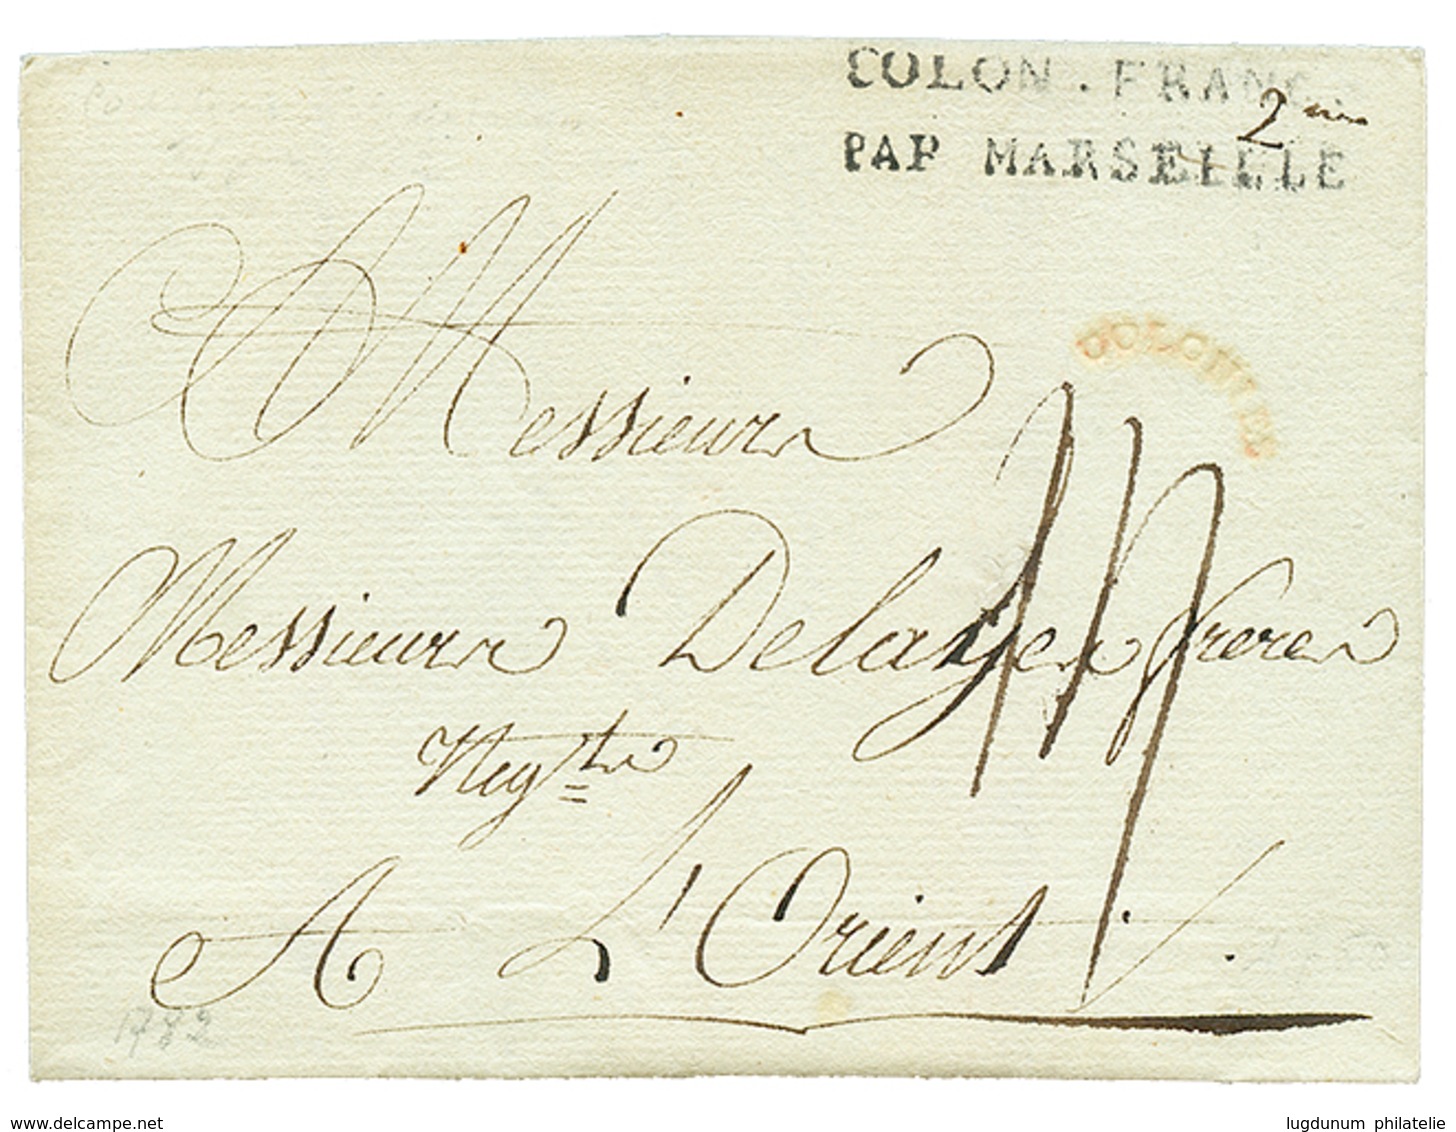 COLON. FRANC.
PAR MARSEILLE
2
COLONIES
Messieurs
Messieurs Delaye frere
Neg.ts
A L'Orient ·/.
1782
www.delcampe.net
lugdunum philatelie